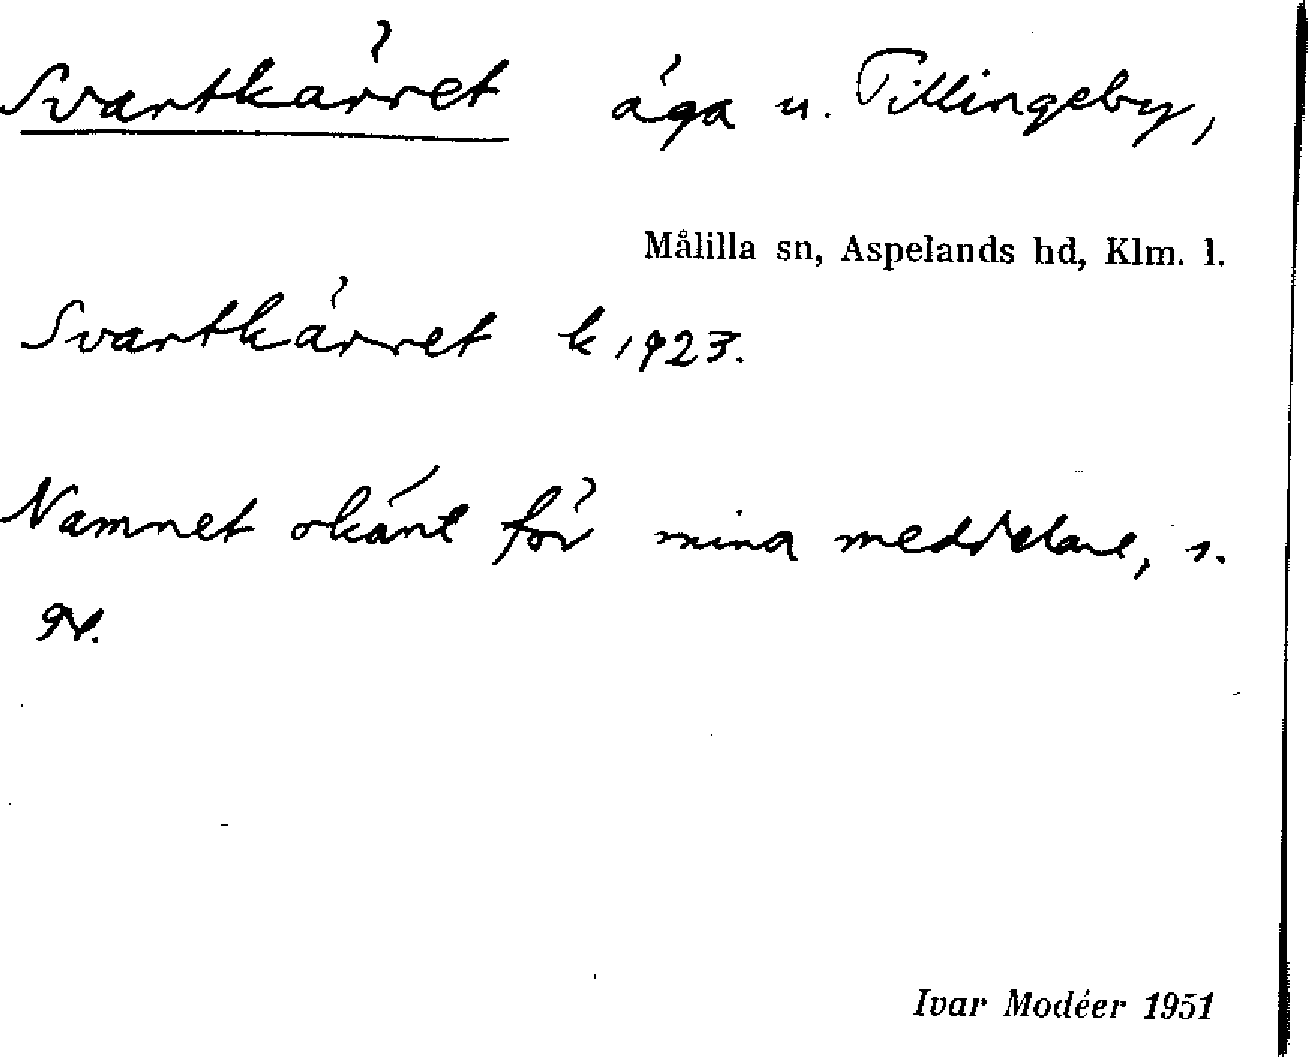 Svartkärret äga u. Tillingeby,
Målilla sn, Aspelands hd, Klm. l.
Svartkärret k 1923.
Namnet okänt för mina meddelare, s.
Ivar Modéer 1951